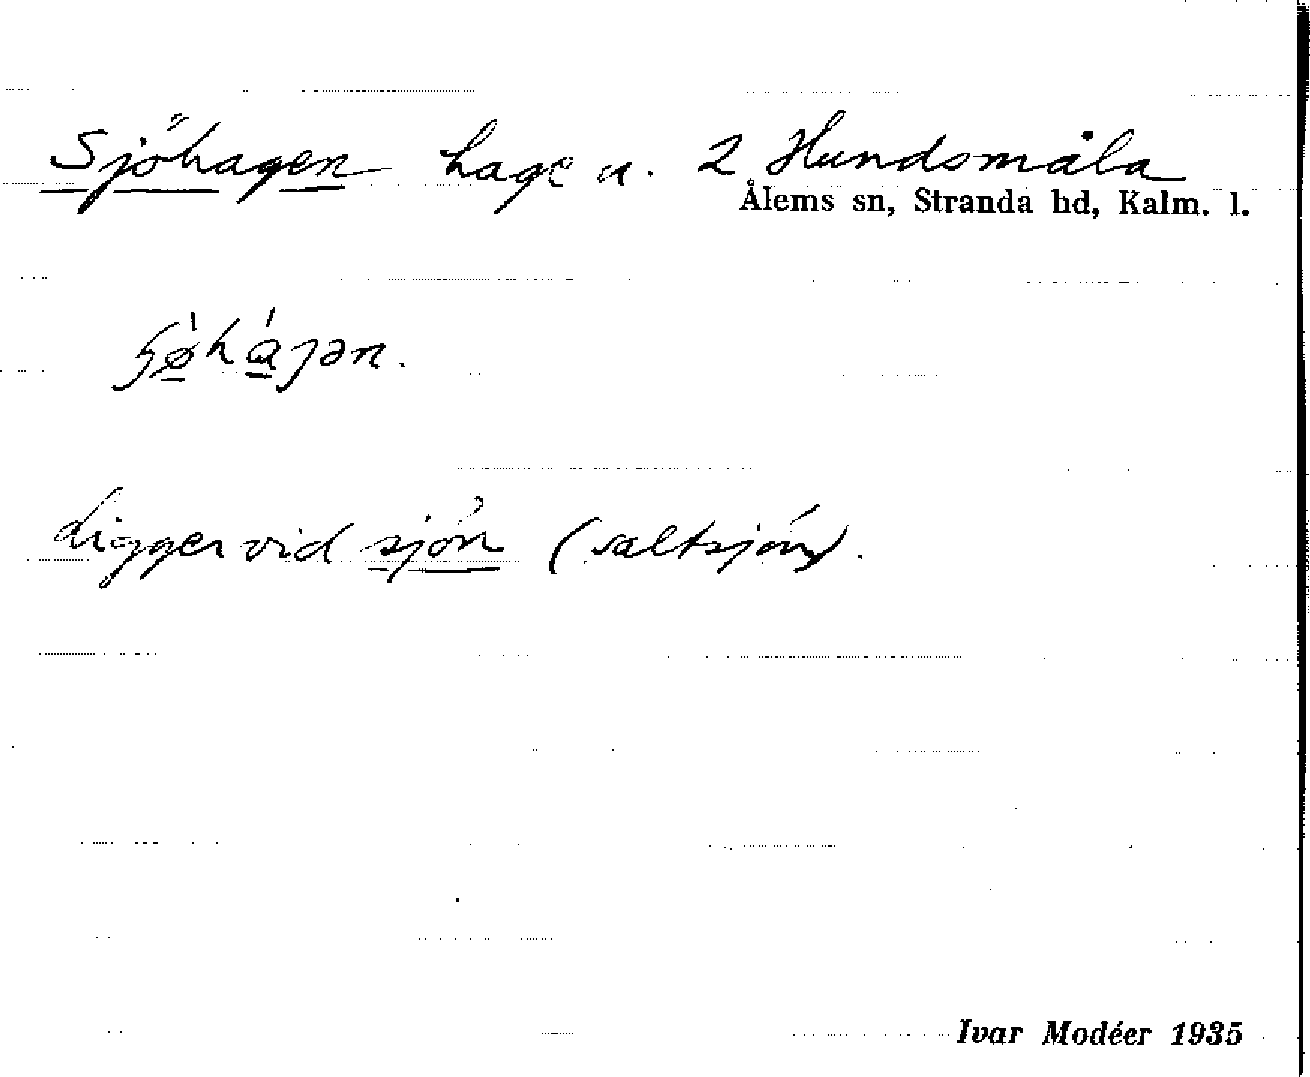 Sjöhagen hage u. 2 Hundsmåla
Ålems sn, Stranda hd, Kalm. l.
Ligger vid sjön (saltsjön).
Ivar Modéer 1935